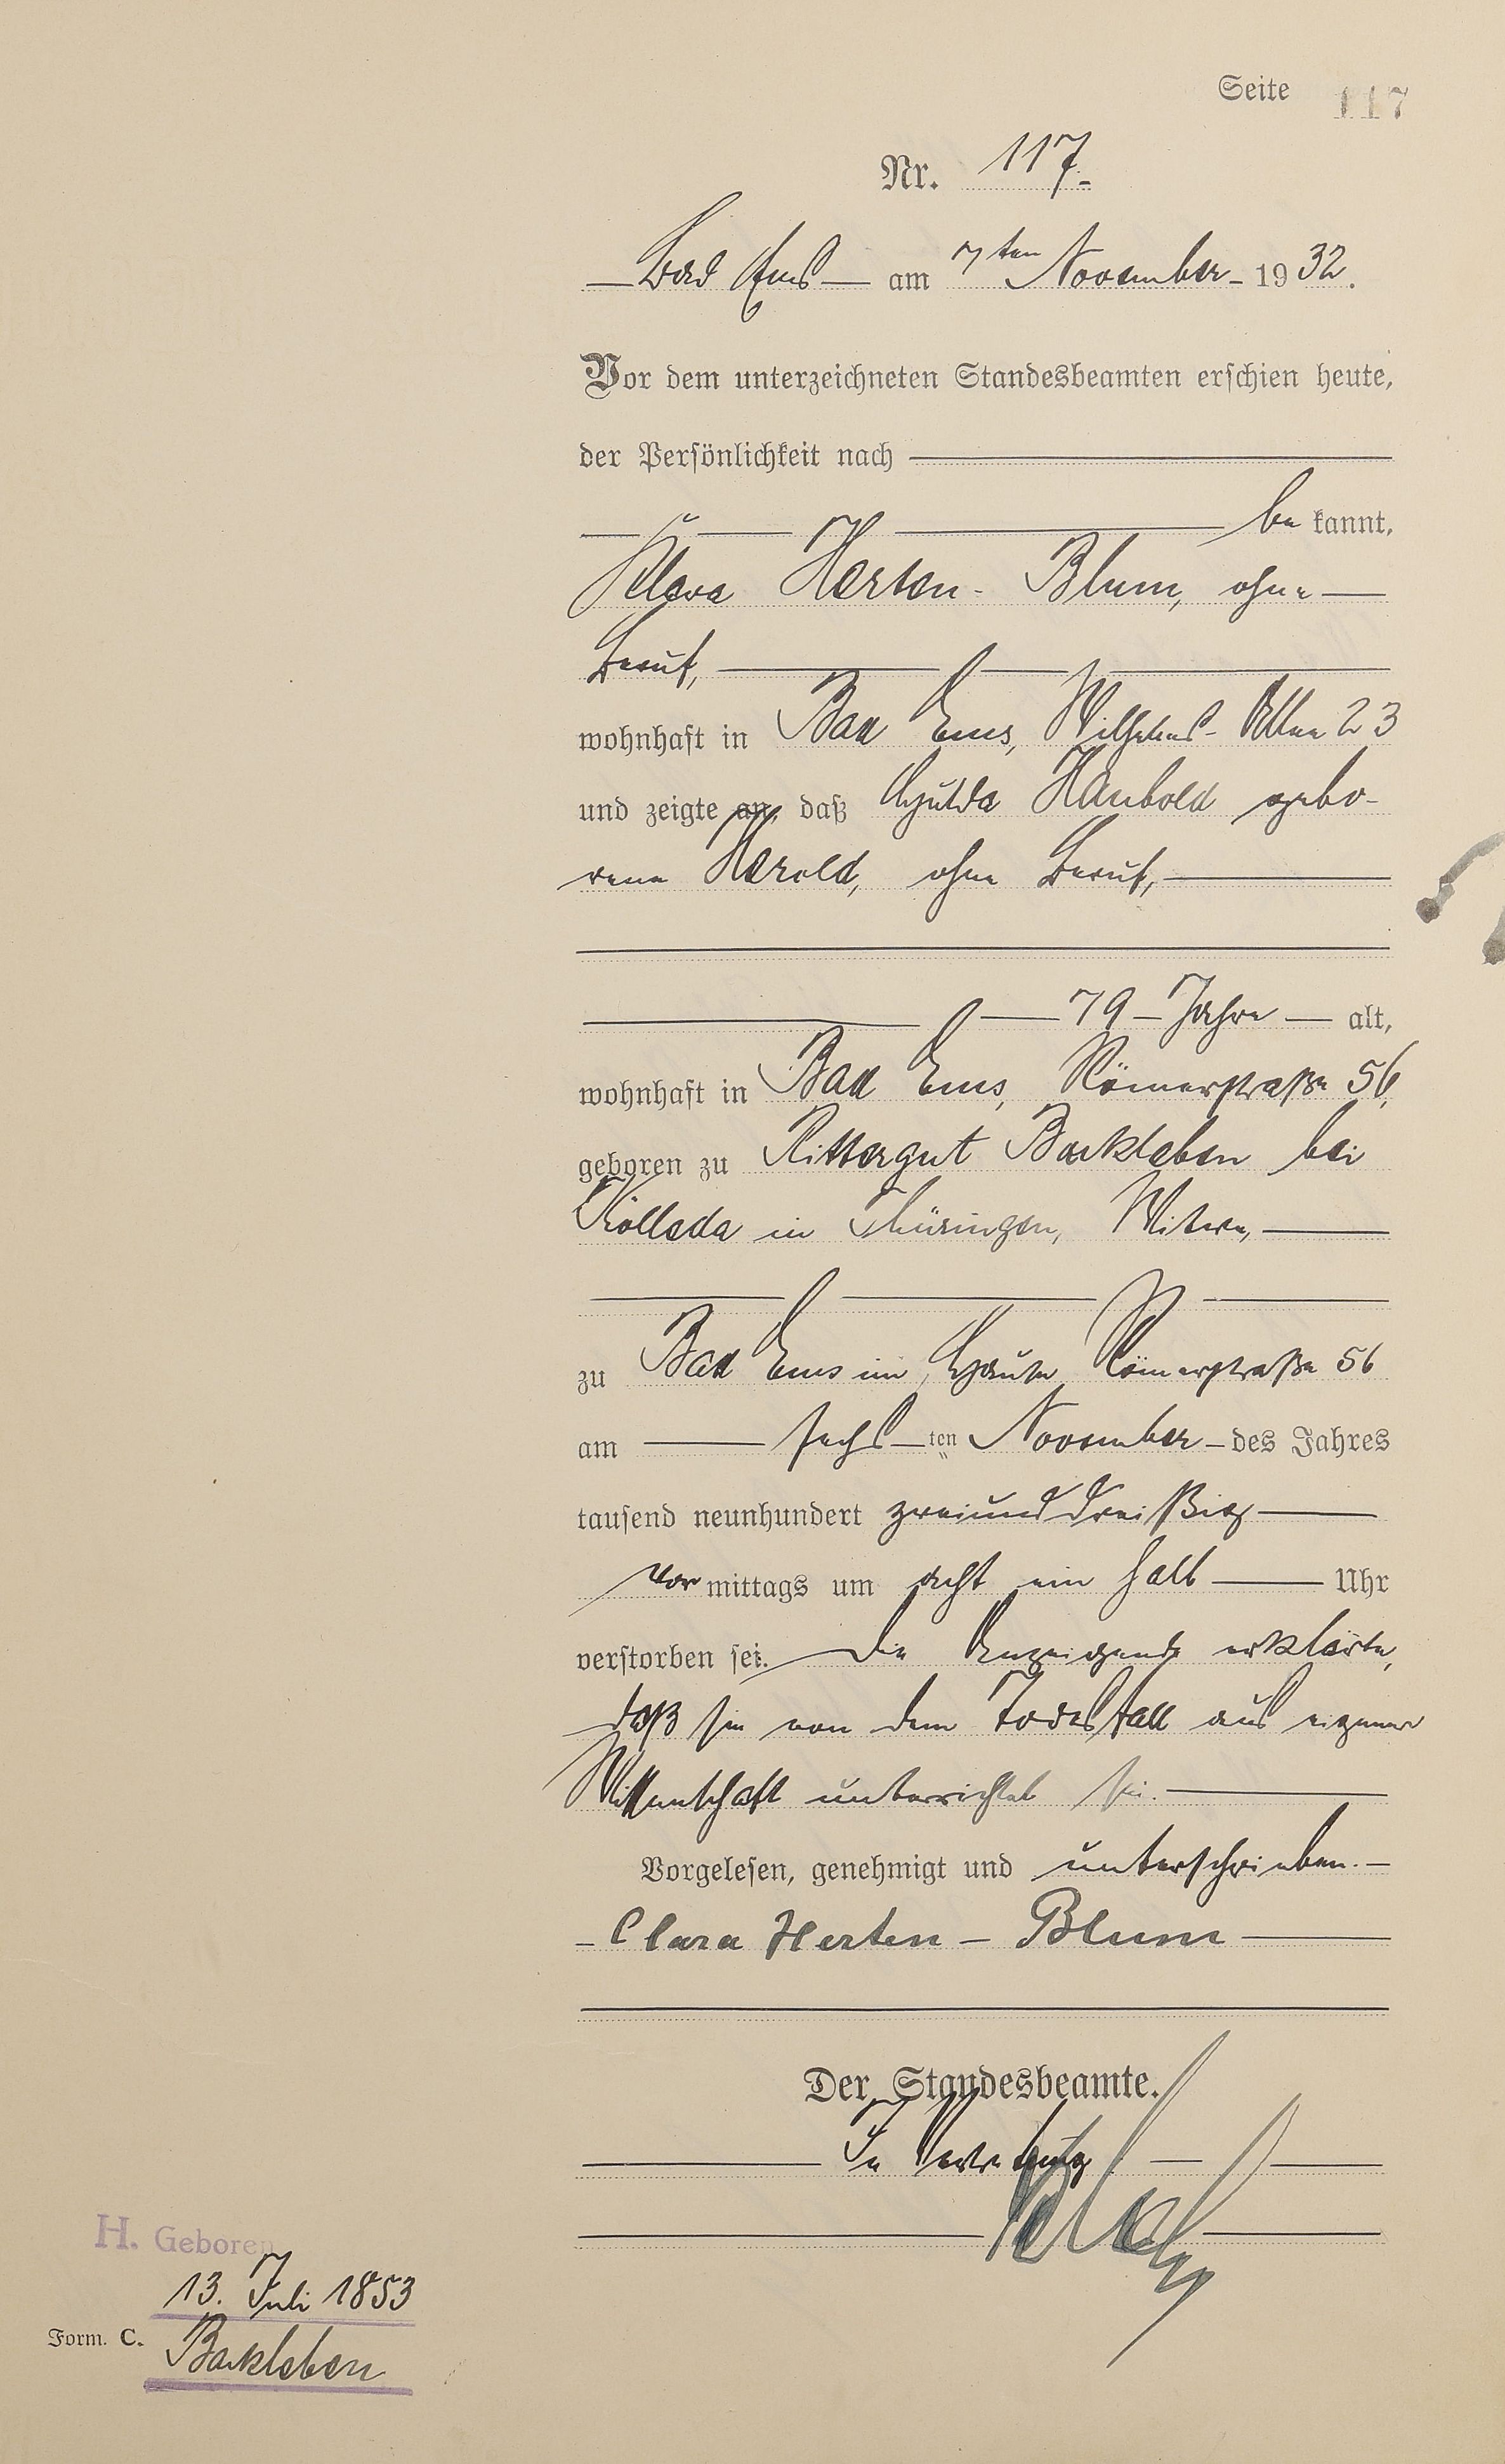 Seite 117
Nr. 117.
Bad Ems am 7ten November 1932.
Vor dem unterzeichneten Standesbeamten erschien heute,
der Persönlichkeit nach
be kannt,
Klara Herten-Blum, ohne
Beruf,
wohnhaft in Bad Ems, Wilhelms-Allee 23
und zeigte an, daß Hulda Haubold gebo-
rene Herold, ohne Beruf,
79 Jahre alt,
wohnhaft in Bad Ems, Römerstraße 56,
geboren zu Rittergut Backleben bei
Kölleda in Thüringen, Witwe,
zu Bad Ems im Hause Römerstraße 56
am sechs ten November des Jahres
tausend neunhundert zweiunddreißig
vor mittags um acht ein halb Uhr
verstorben sei. Die Anzeigende erklärte,
daß sie von dem Todesfall aus eigener
Wissenschaft unterrichtet sei.
Vorgelesen, genehmigt und unterschrieben.
Clara Herten-Blum
Der Standesbeamte.
In Vertretung
H. Geboren
13. Juli 1853
Form. C.
Backleben